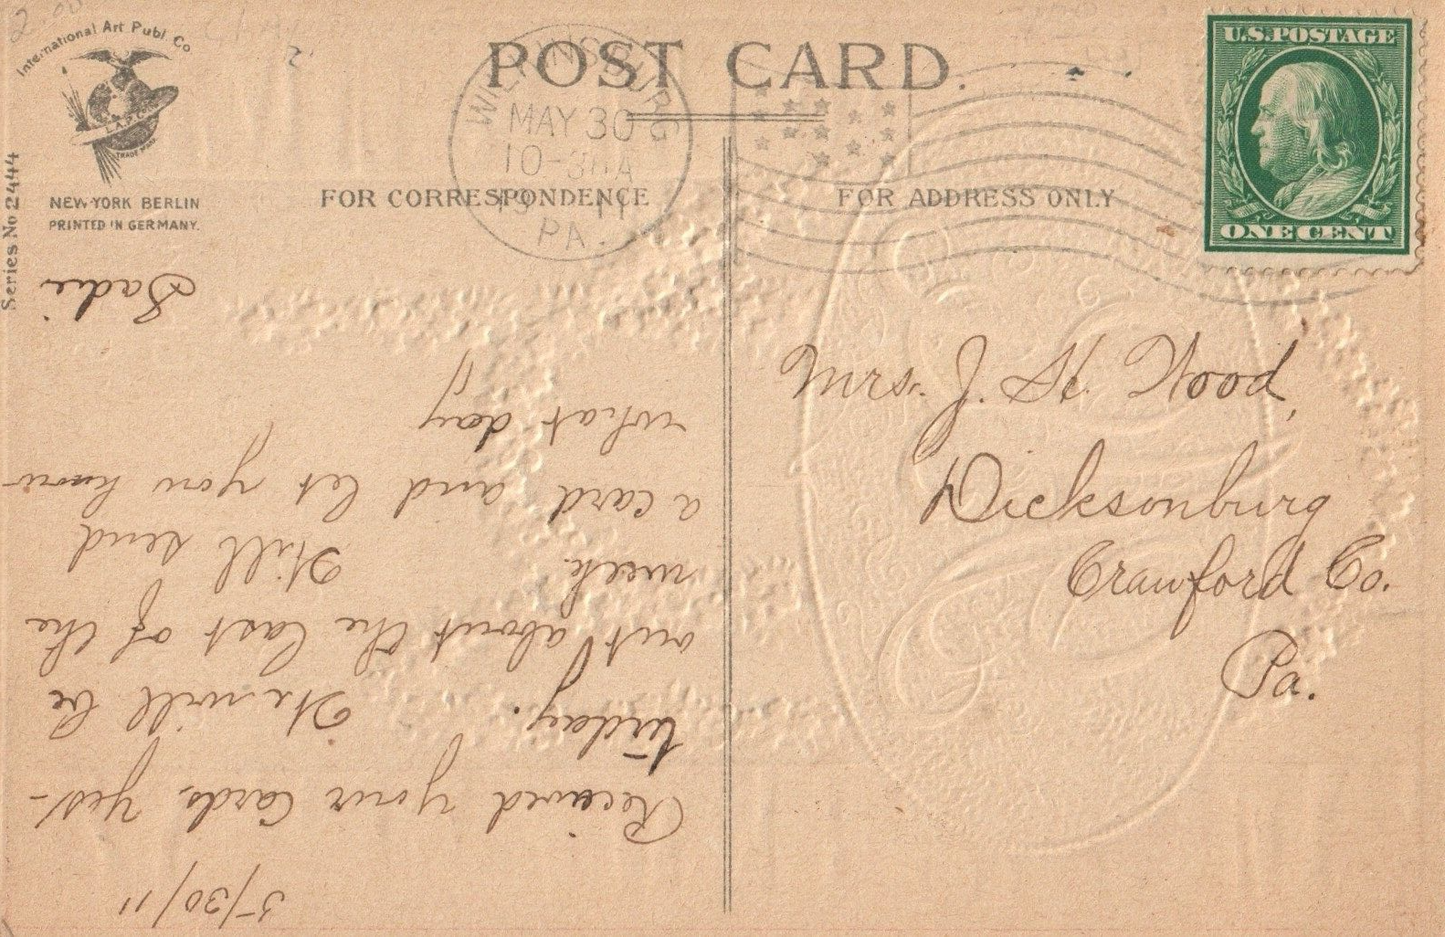 2.00
International Art Publ. Co.
I.A.P.Co.
TRADE MARK
NEW-YORK BERLIN
PRINTED IN GERMANY.
Series No 2444
POST CARD.
WILKINSBURG
MAY 30
10-30A
1911
PA.
FOR CORRESPONDENCE
FOR ADDRESS ONLY
U.S. POSTAGE
ONE CENT
Mrs. J. H. Wood,
Dicksonburg
Crawford Co.
Pa.
5/30/11
Received your Cards yes-
terday. We will be
out about the last of the
week. Will send
a card and let you know
what day
Sadie